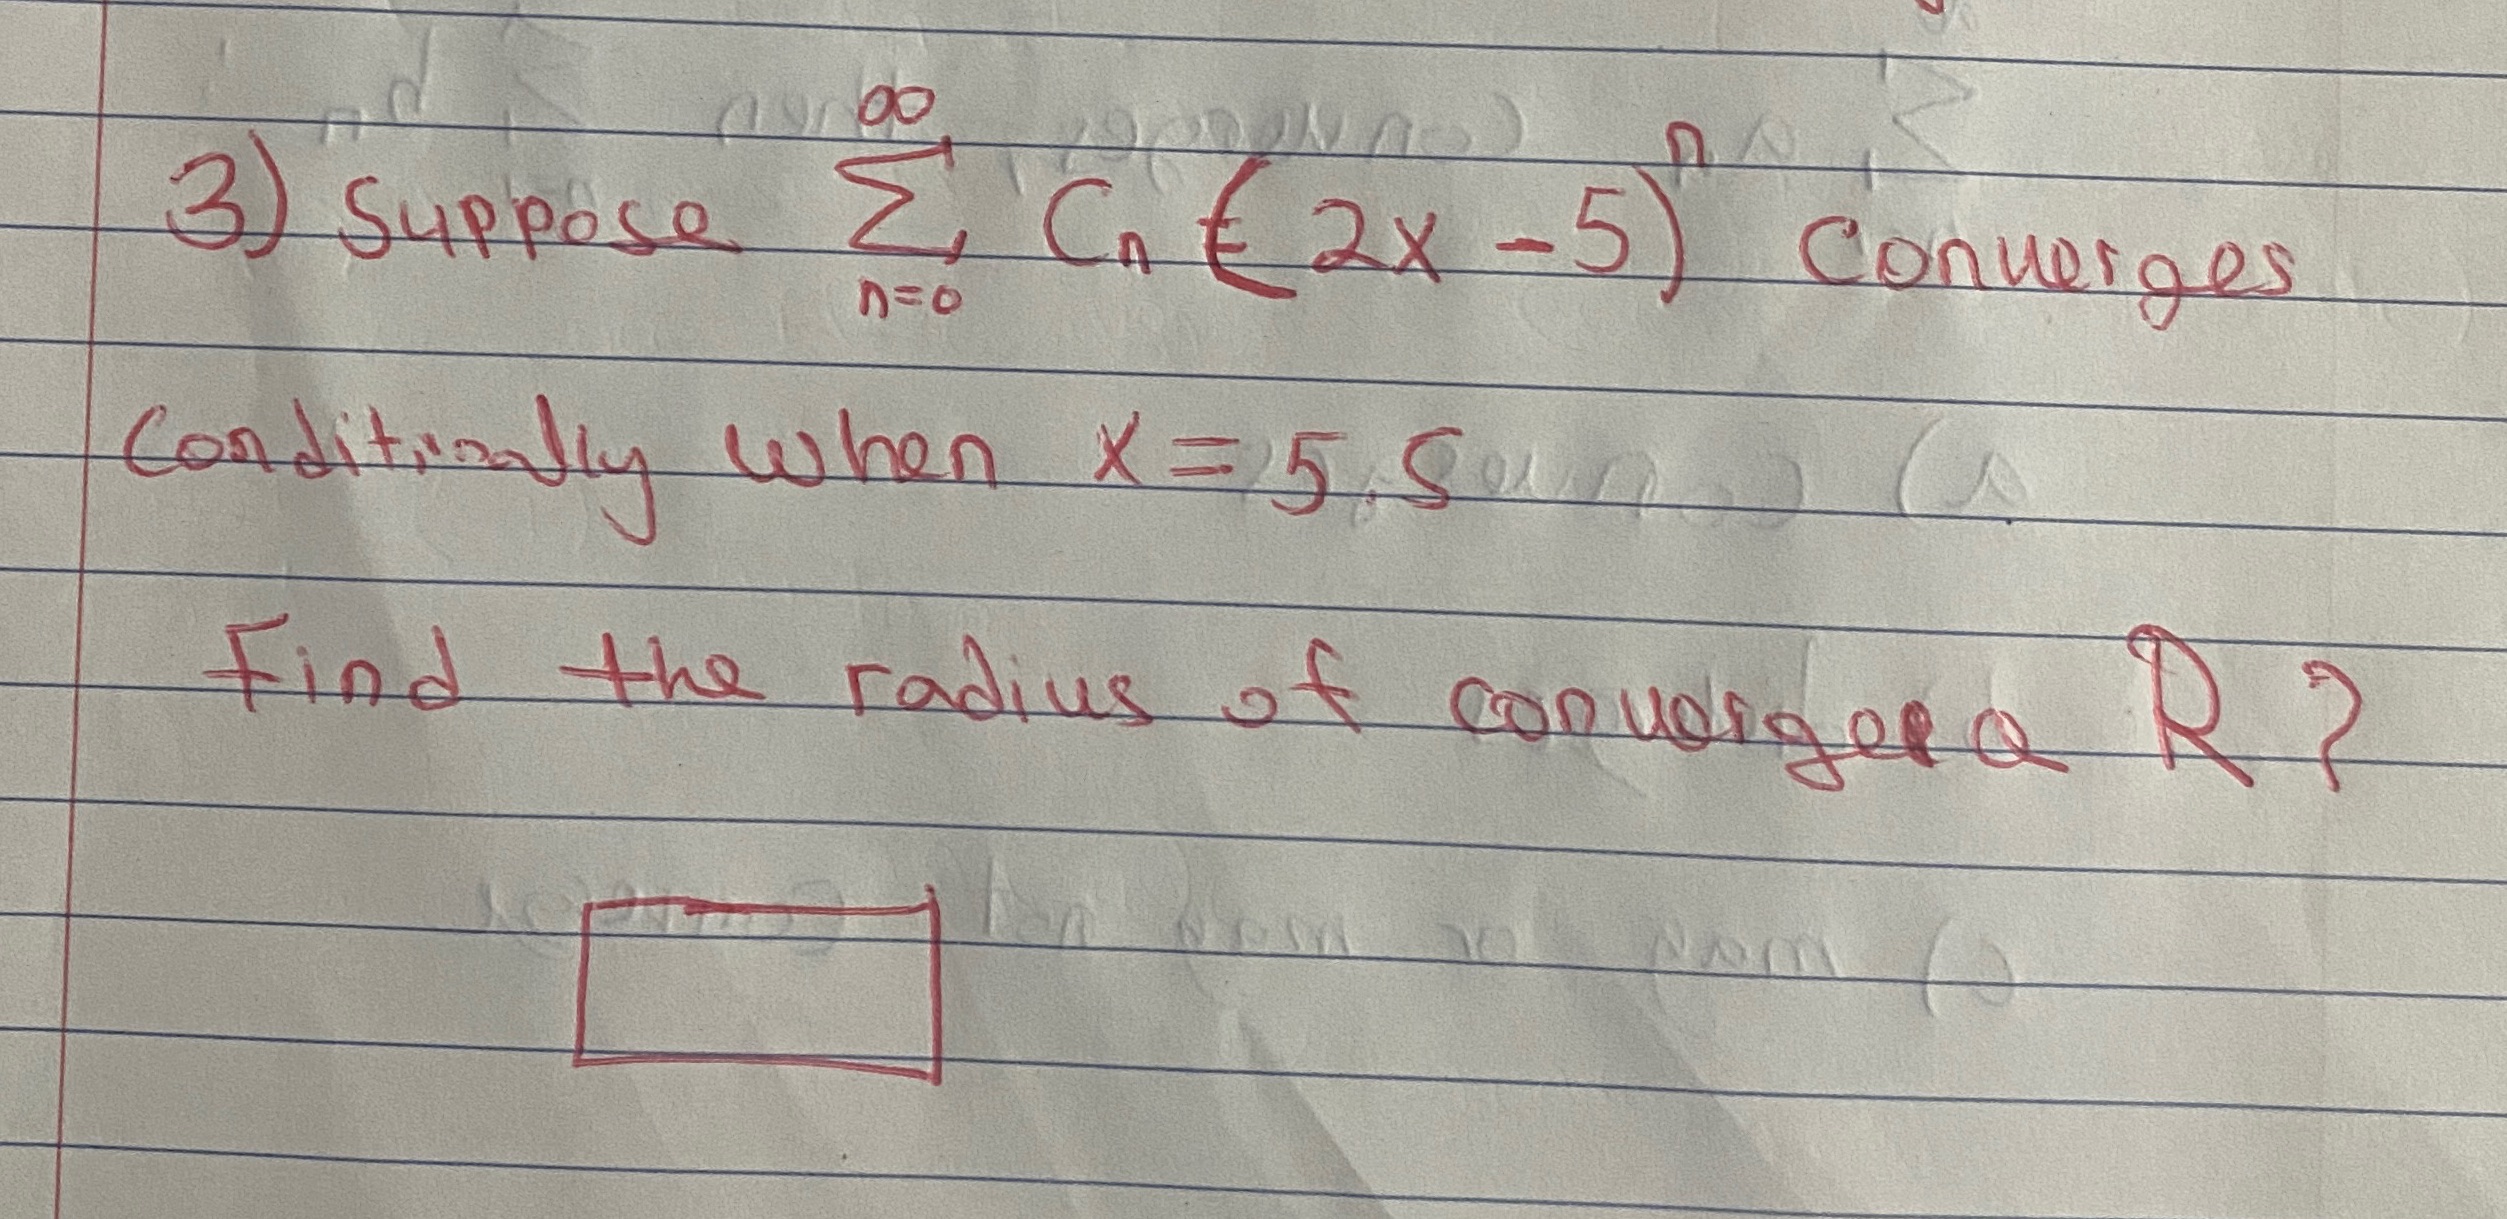 3) Suppose ∞ Σ n=0 Cn (2x - 5)^n converges
conditionally when x = 5.5
Find the radius of convergence R?